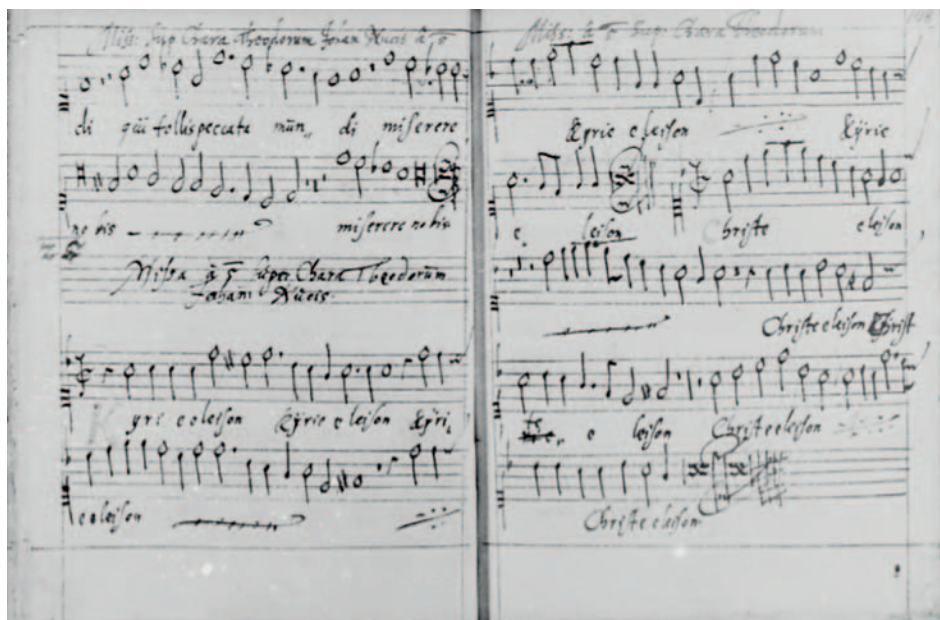 Miss: Sup Chara Theodorum Johan Nucis â 5
di qui tollis peccata mun„ di miserere
no bis miserere nobis
Missa â 5 Super Chara Theodorum
Johan Nucis.
Kyri e eleison Kyrie e leison Kyri„
e eleison
Miss: â 5 Sup: Chara Theodorum
Kyrie e leison Kyrie
e„ leison Christe eleison
Christe eleison Christ
e leison Christe eleison
Christe eleison